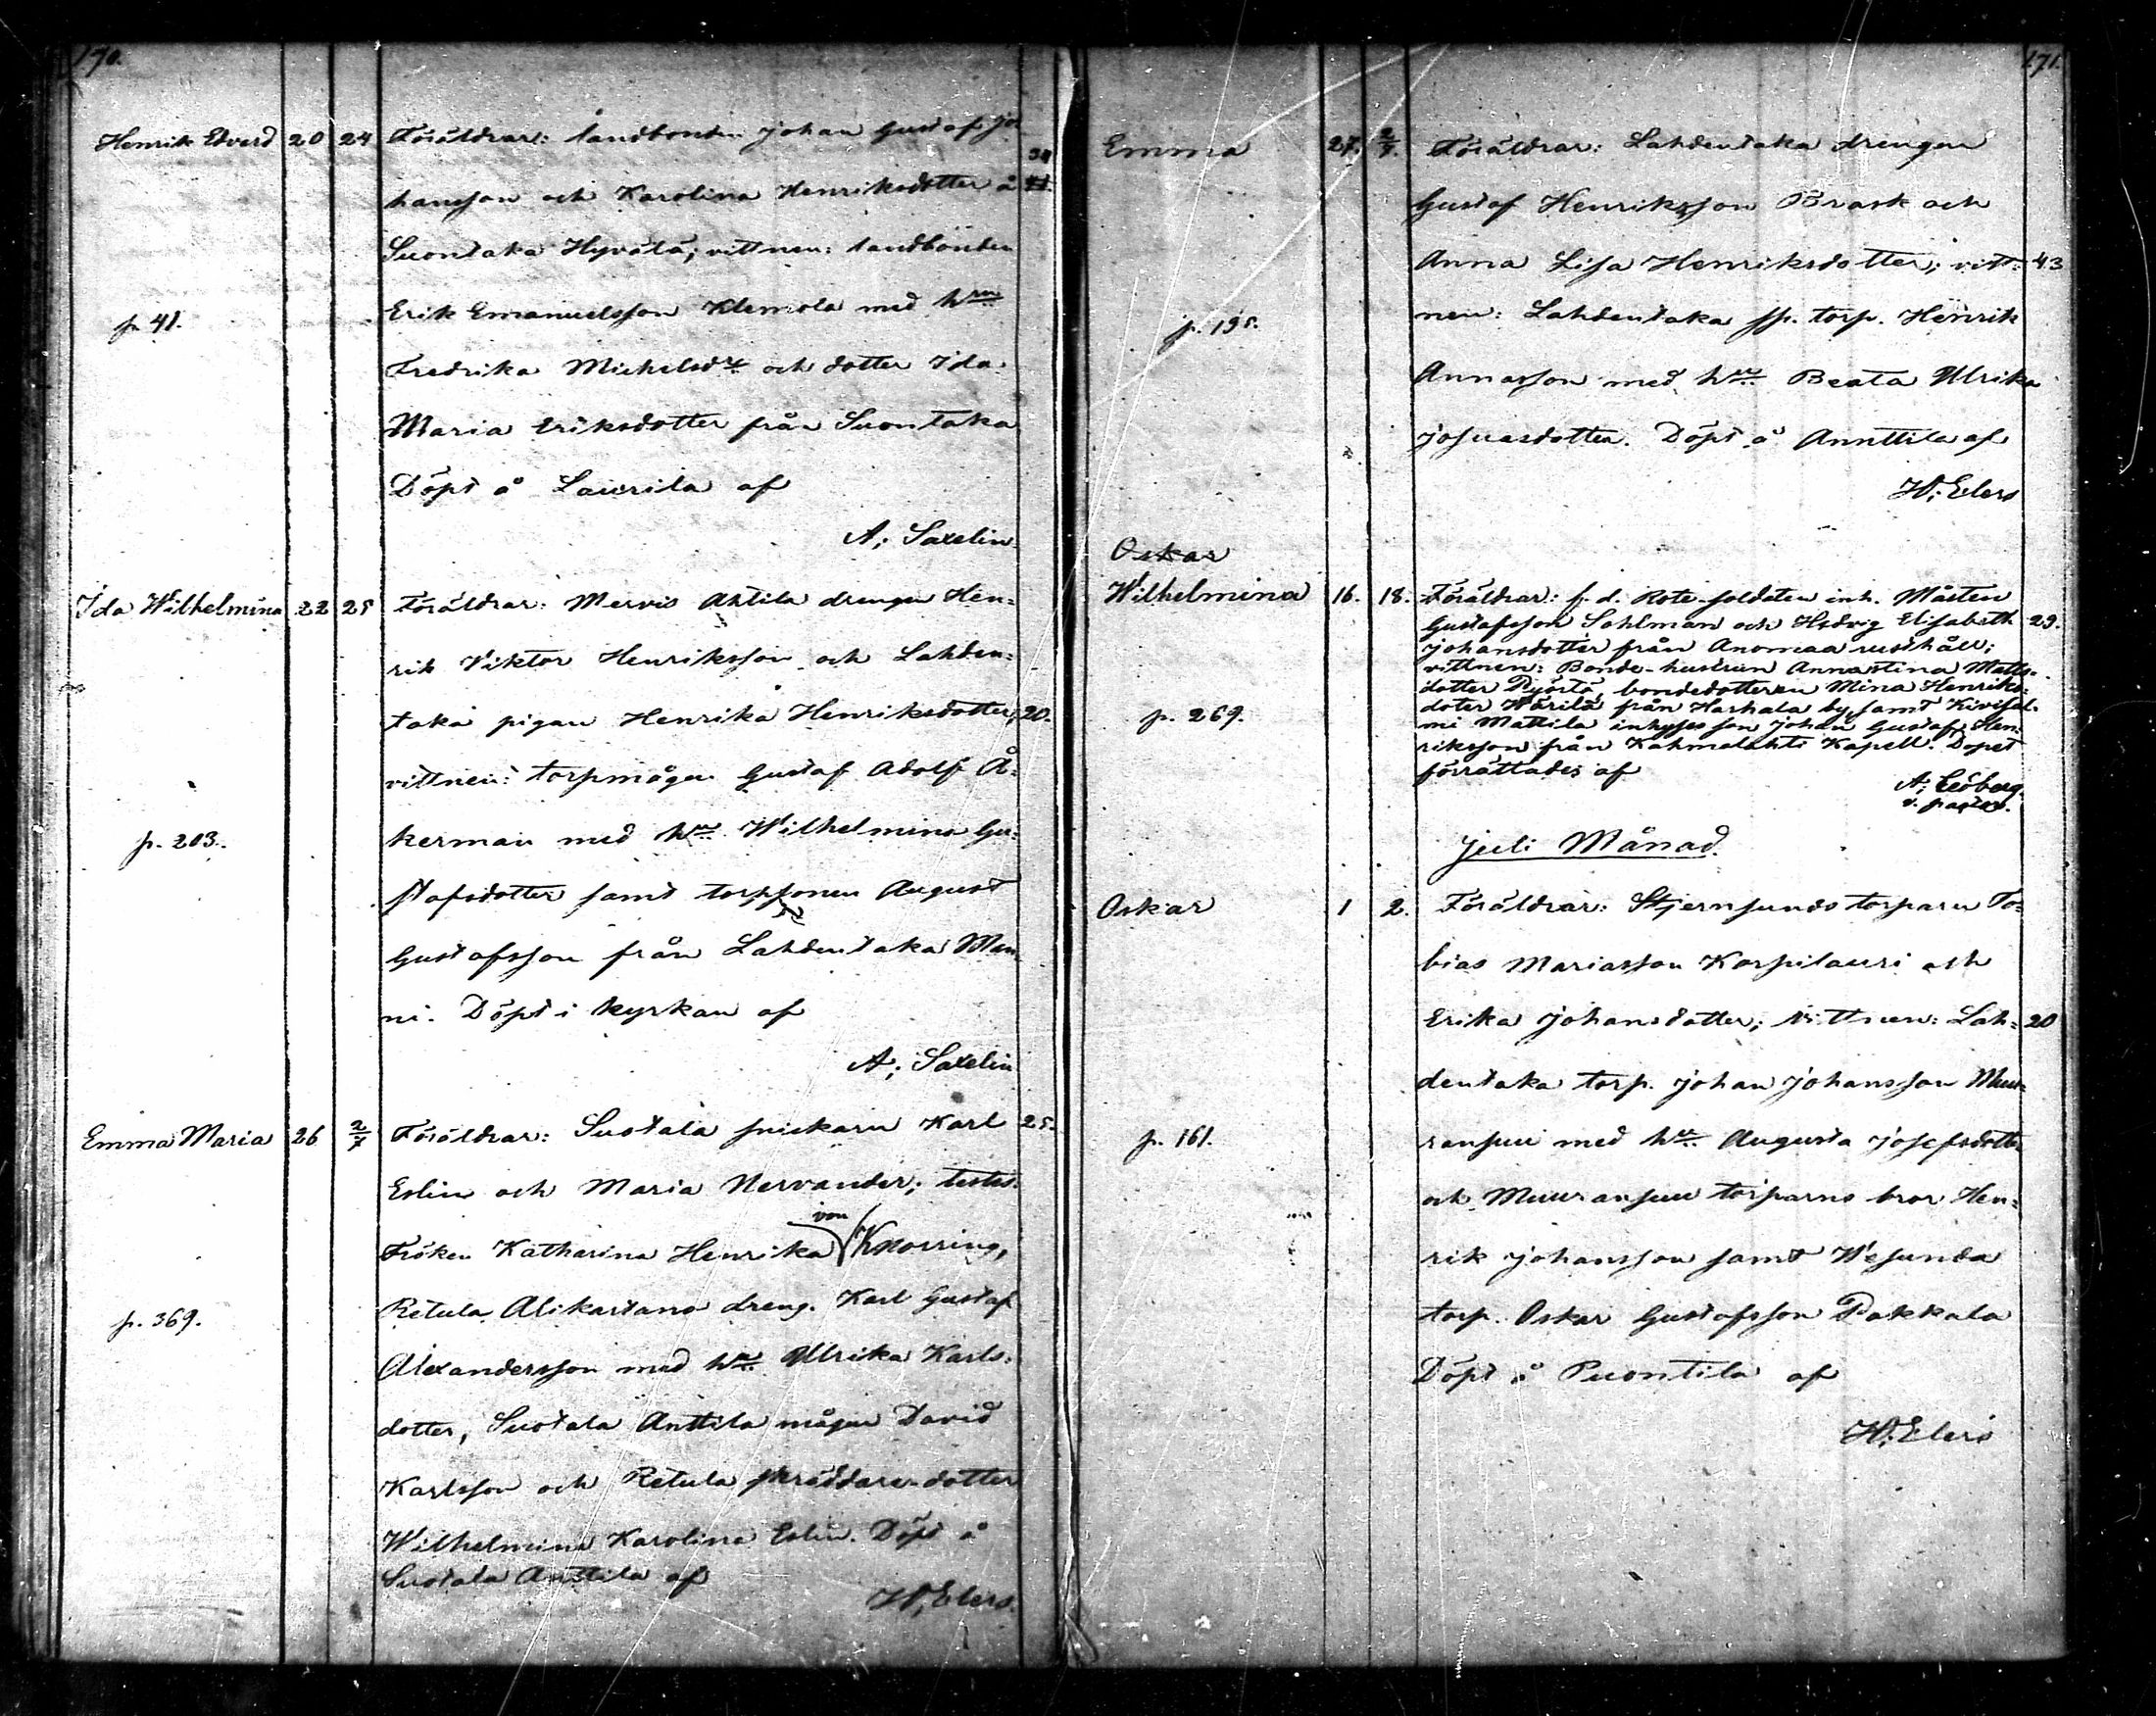 170.
Henrik Edvard 20 24 Föräldrar: landbonden Johan Gustaf Jo
hansson och Karolina Henriksdotter å 34
Suontaka Hyvölä; vittnen: landbonden
p. 41. Erik Emanuelsson Klemola med hru
Fredrika Michelsdr och dotter Ida
Maria Eriksdotter från Suontaka
Döpt å Laurila af
A; Saxelin.
Ida Wilhelmina 22 25 Föräldrar: Mervis Ahtila drengen Hen=
rik Viktor Henriksson och Lahden=
taka pigan Henrika Henriksdotter; 20.
vittnen: torpmågen Gustaf Adolf Å=
p. 203. kerman med hru Wilhelmina Gu=
stafsdotter samt torpsonen August
Gustafsson från Lahdentaka Man
ni. Döpt i kyrkan af
A; Saxelin
Emma Maria 26 2/7 Föräldrar: Suotala snickarn Karl 25.
Eslin och Maria Nervander; testes:
Fröken Katharina Henrika von Knorring,
p. 369. Retula Alikartano dreng. Karl Gustaf
Alexandersson med hru Ulrika Karls=
dotter, Suotala Anttila mågen David
Karlsson och Retula skräddare-dotter
Wilhelmina Karolina Eslin. Döpt å
Suotala Anttila af
W; Elers.
171.
Emma 27. 2/7. Föräldrar: Lahdentaka drengen
Gustaf Henriksson Brask och
Anna Lisa Henriksdotter; vitt= 43
p. 195. nen: Lahdentaka sp. torp. Henrik
Annasson med hru Beata Ulrika
Josuasdotter. Döpt å Annttila af
W; Elers
Oskar
Wilhelmina 16. 18. Föräldrar: f. d. Rote-soldaten inh. Mårten
Gustafsson Sahlman och Hedvig Elisabeth 29.
Johansdotter från Anomaa rusthåll;
vittnen: Bonde-hustrun Annastina Matts=
dotter Pyörlä, bondedotteren Mina Henriks=
doter Wärilä från Harhala by samt Kivisal=
p. 269. mi Mattila inhyses son Johan Gustaf Hen=
riksson från Kahmalahti Kapell. Dopet
förrättades af
A; Leöberg.
v. pastor.
Juli Månad.
Oskar 1 2. Föräldrar: Stjernsunds torparn To=
bias Mariasson Korpilauri och
Erika Johansdotter; vittnen: Lah= 20
dentaka torp. Johan Johansson Muu=
p. 161. ransuu med hru Augusta Josefsdotter
och Muuransuu torparns bror Hen=
rik Johansson samt Wesunda
torp. Oskar Gustafsson Pakkala
Döpt å Puontila af
W; Elers